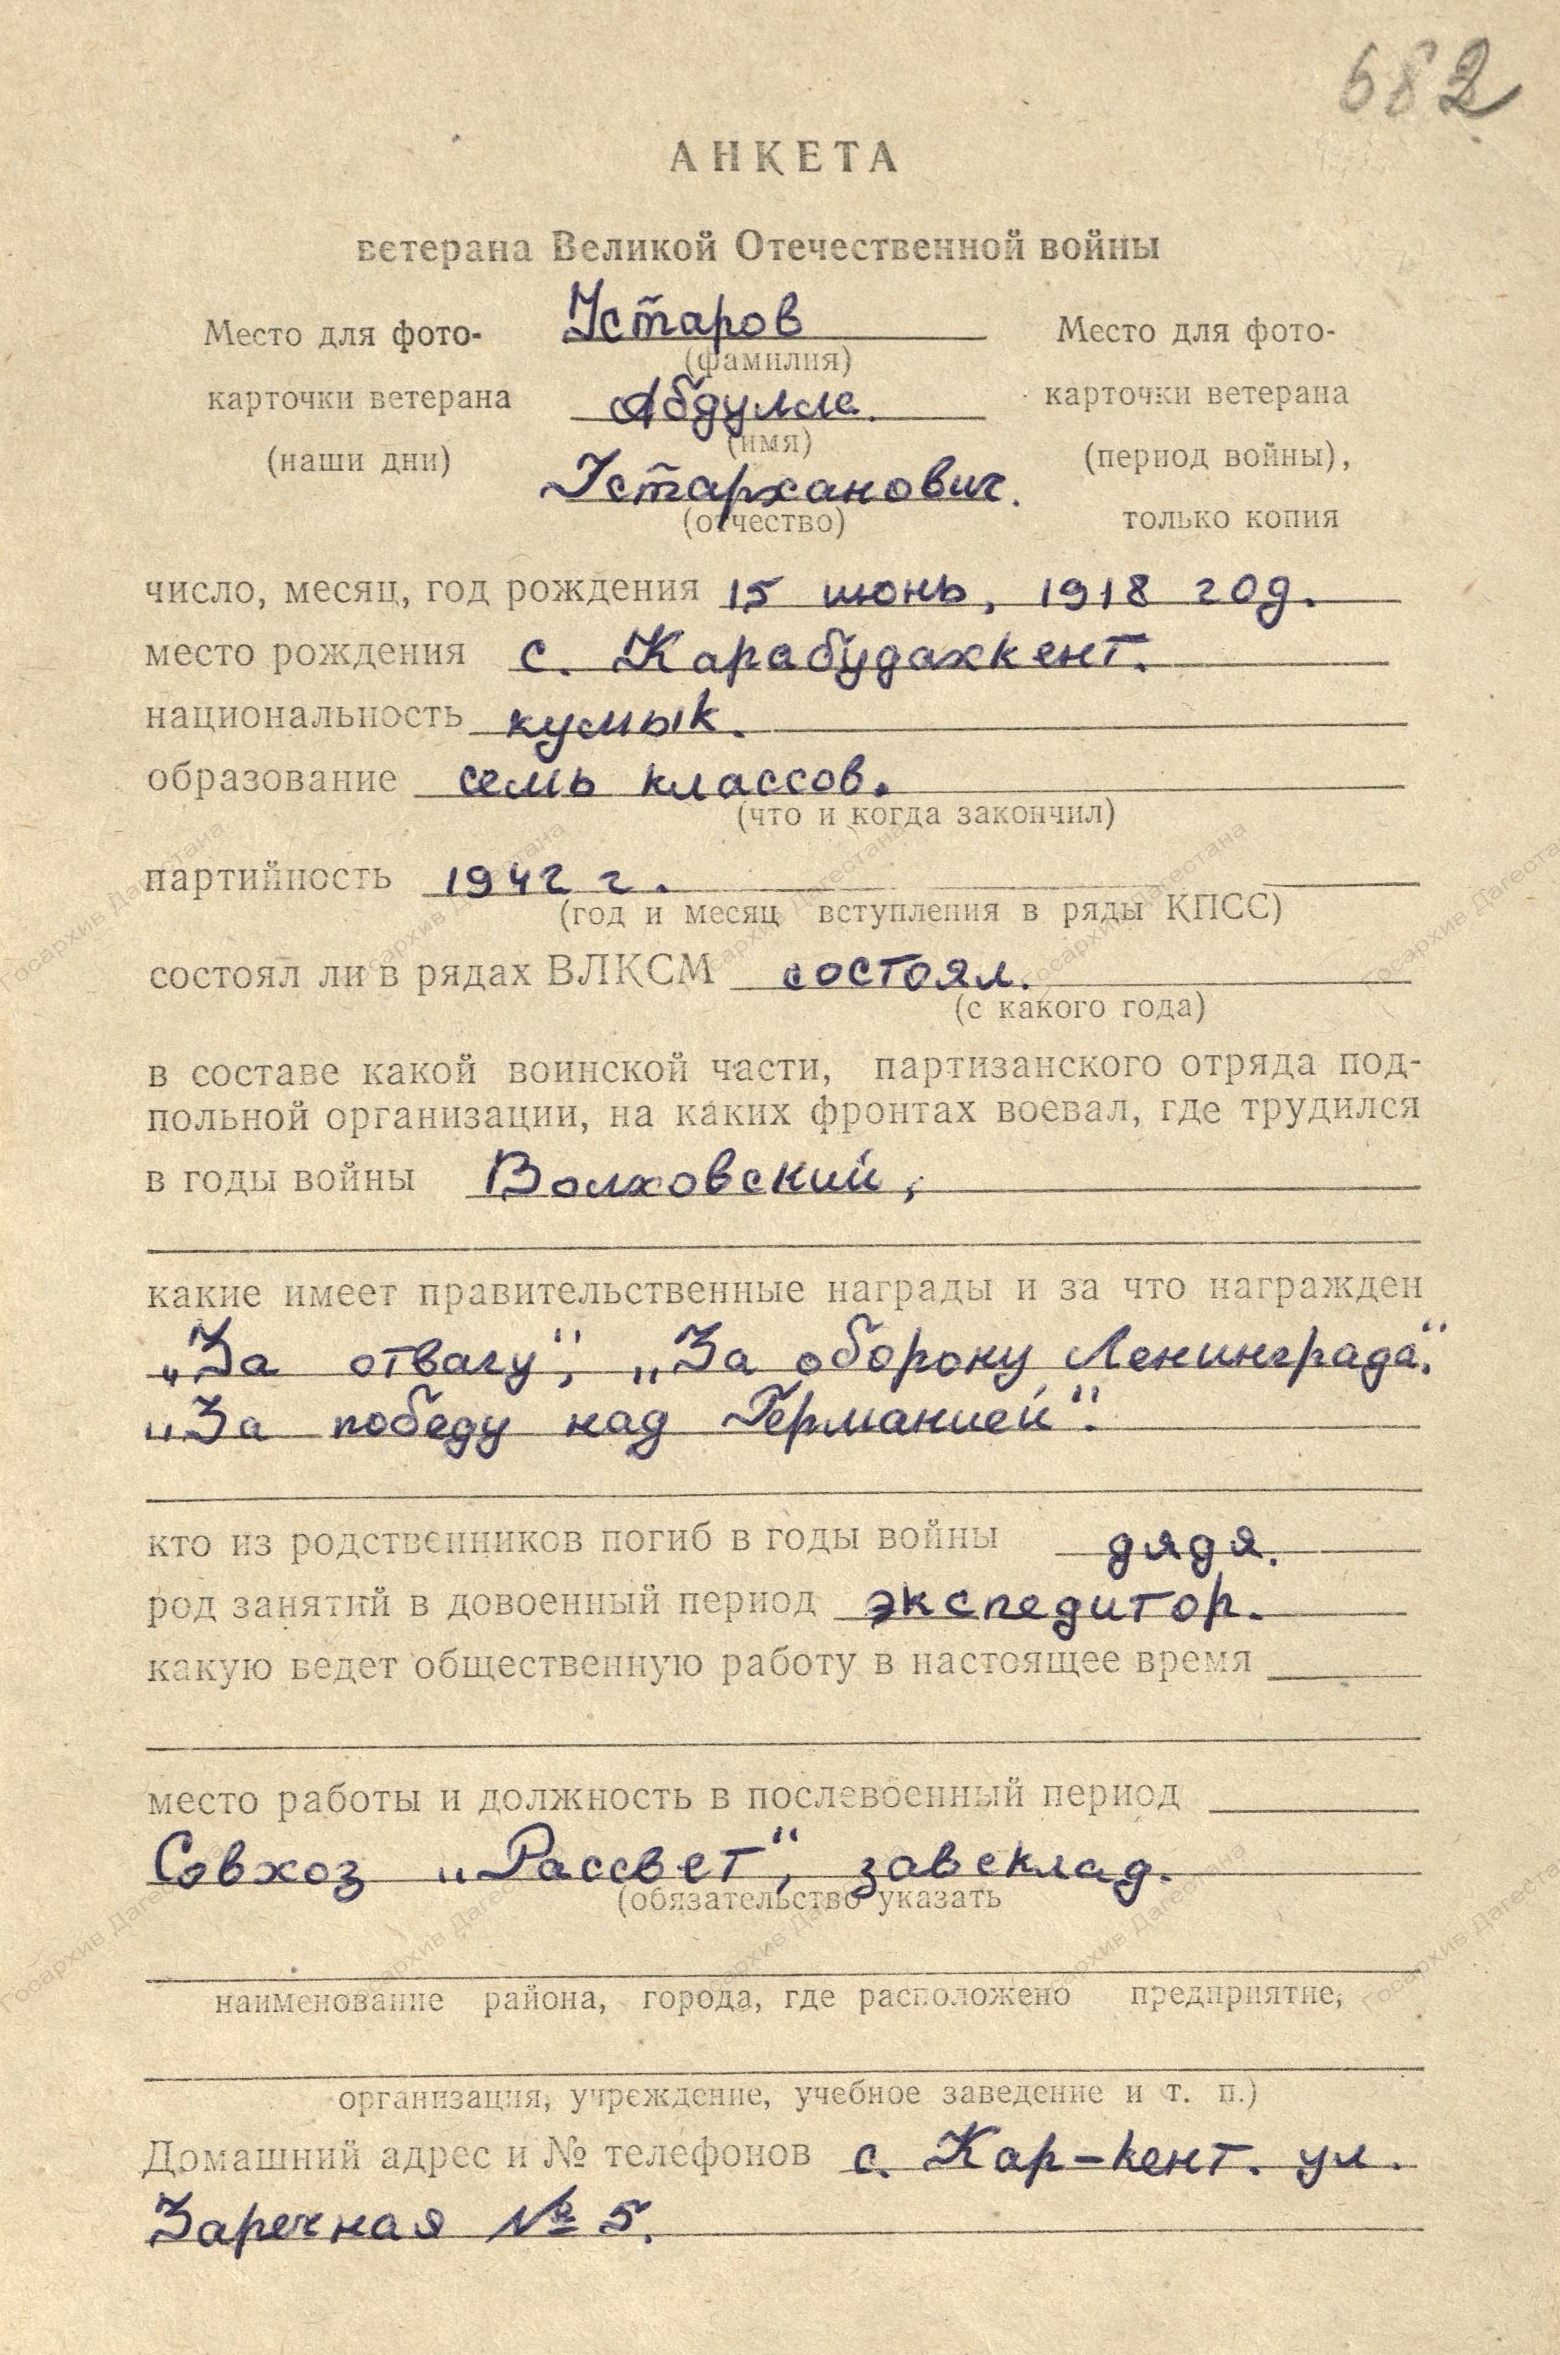 682
АНКЕТА
ветерана Великой Отечественной войны
Устаров
Место для фото-
(фамилия)
Место для фото-
карточки ветерана
Абдулла.
карточки ветерана
(имя)
(наши дни)
Устарханович.
(период войны),
(отчество)
только копия
число, месяц, год рождения 15 июнь, 1918 год.
место рождения с. Карабудахкент.
национальность кумык.
образование семь классов.
(что и когда закончил)
партийность 1942 г.
(год и месяц вступления в ряды КПСС)
состоял ли в рядах ВЛКСМ состоял.
(с какого года)
в составе какой воинской части, партизанского отряда под-
польной организации, на каких фронтах воевал, где трудился
в годы войны Волховский,
какие имеет правительственные награды и за что награжден
„За отвагу“, „За оборону Ленинграда“.
„За победу над Германией“.
кто из родственников погиб в годы войны дядя.
род занятий в довоенный период экспедитор.
какую ведет общественную работу в настоящее время
место работы и должность в послевоенный период
Совхоз „Рассвет“, завсклад.
(обязательство указать
наименование района, города, где расположено предприятие,
организация, учреждение, учебное заведение и т. п.)
Домашний адрес и № телефонов с. Кар-кент. ул.
Заречная № 5.
Госархив Дагестана